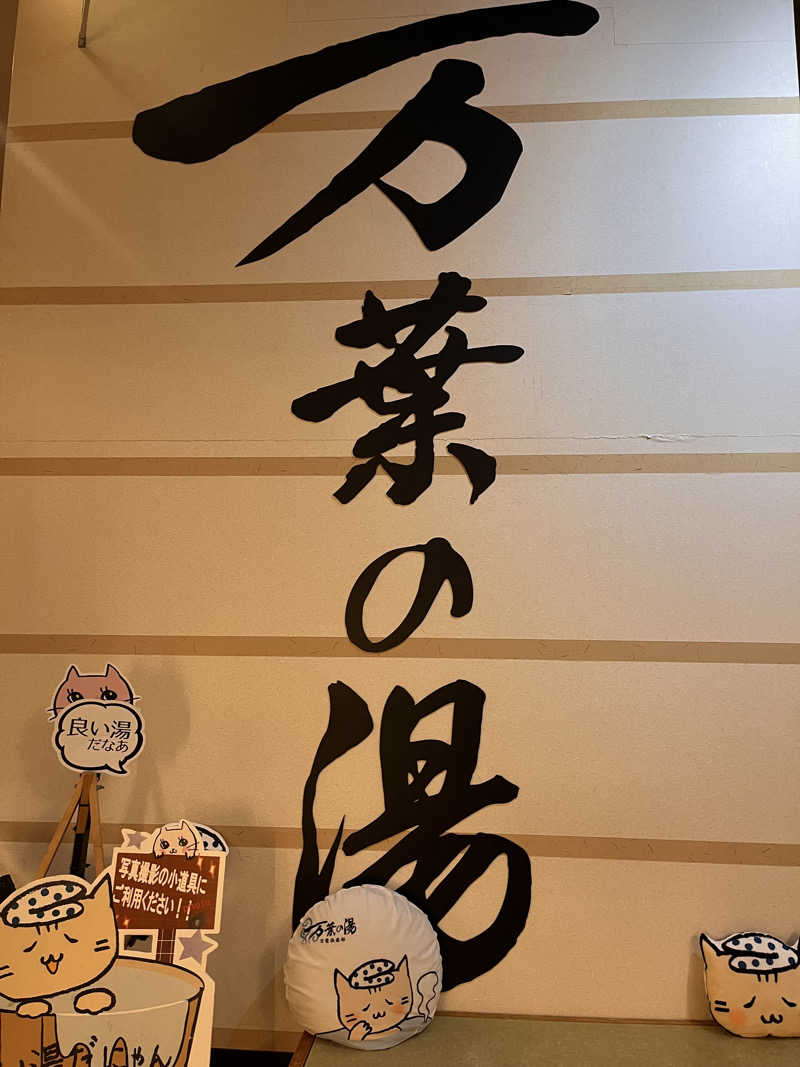 万葉の湯
良い湯
だなあ
写真撮影の小道具に
ご利用ください！！
万葉の湯
湯だにゃん